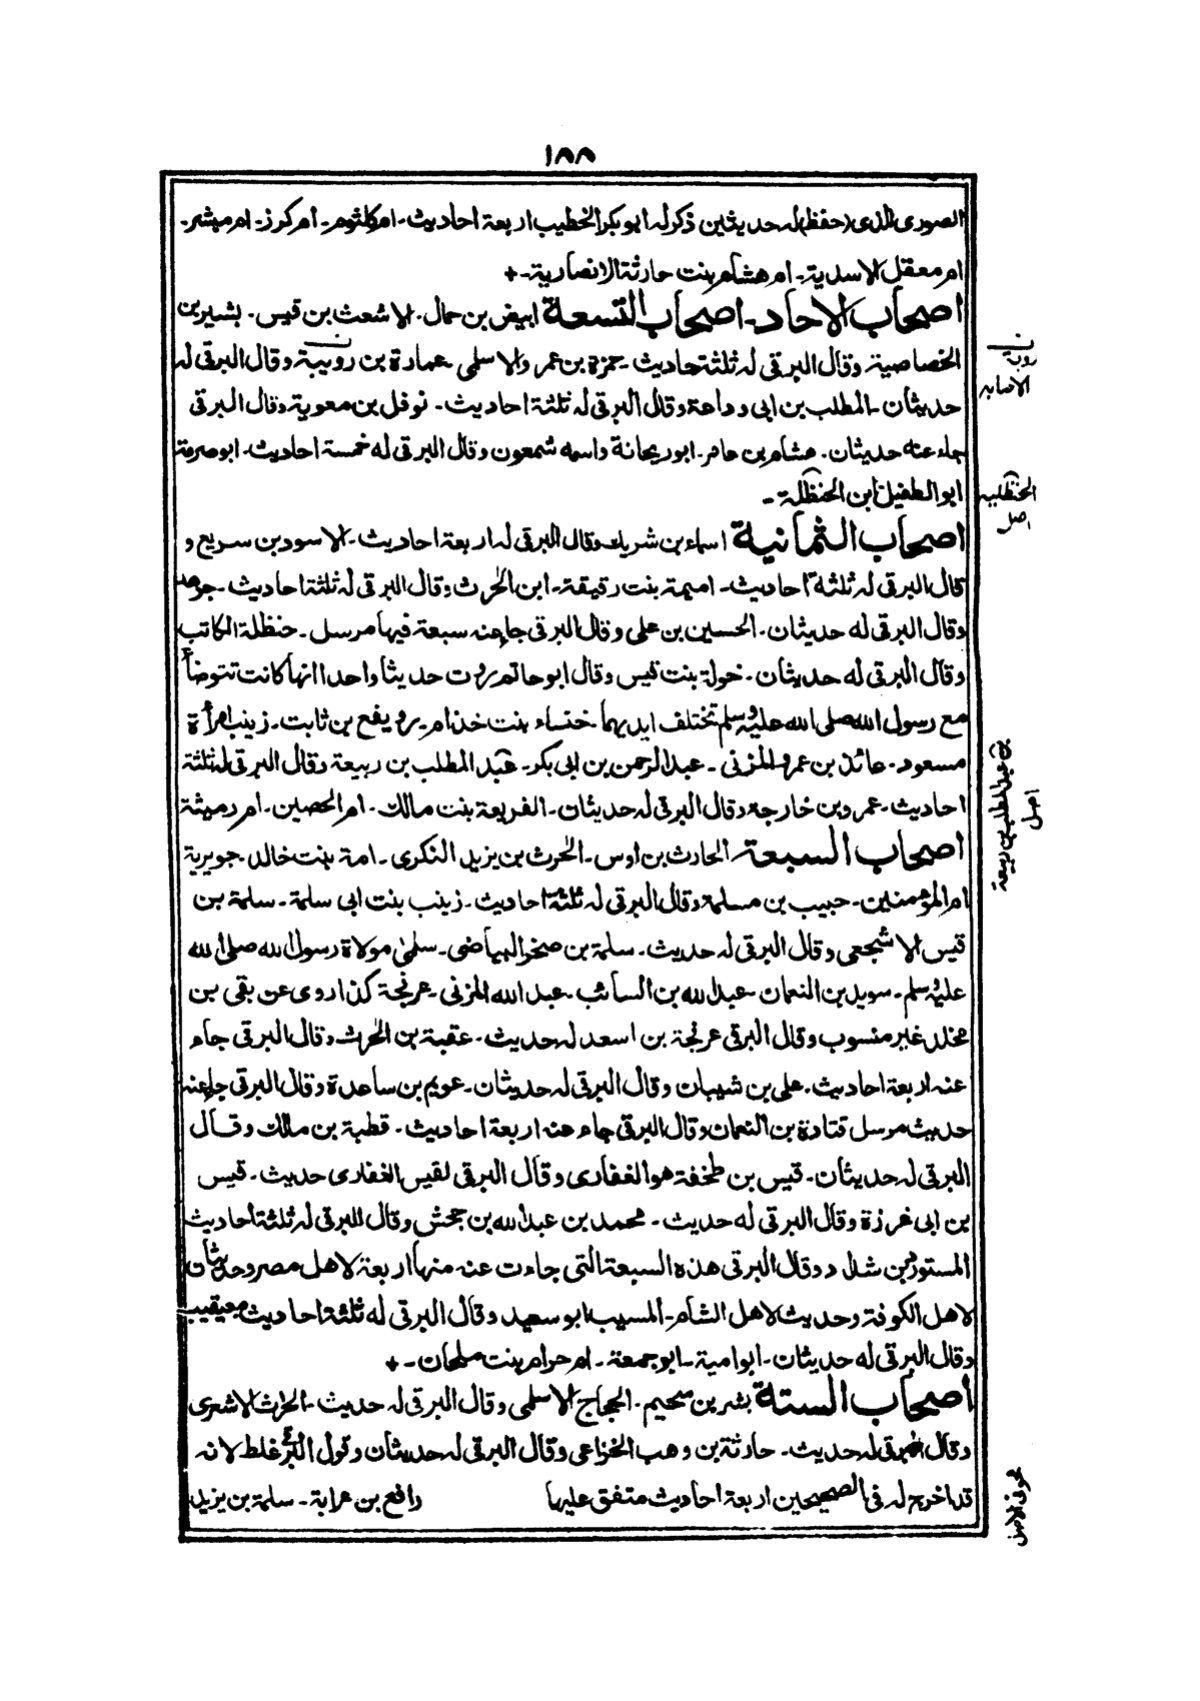 ١٨٨
الصوری الذی (حفظ) له حدیثین ذکر له ابو بکر الخطیب اربعة احادیث۔ ام کلثوم۔ ام کرز۔ ام مبشر۔
ام معقل الاسدیة۔ ام هشام بنت حارثة الانصاریة۔+
اصحاب الاحاد۔ اصحاب التسعة ابیض بن حمال۔ الاشعث بن قیس۔ بشیر بن
الخصاصیة وقال البرقی له ثلثة احادیث۔ حمزة بن عمر والاسلمی۔ عمارة بن رویبة وقال البرقی له
حدیثان۔ المطلب بن ابی وداعة وقال البرقی له ثلثة احادیث۔ نوفل بن معویة وقال البرقی
جاء عنه حدیثان۔ هشام بن عامر۔ ابو ریحانة واسمه شمعون وقال البرقی له خمسة احادیث۔ ابو صرمة
ابو الطفیل۔ ابن الحنظلة۔
اصحاب الثمانیة اسماء بن شریك وقال البرقی له اربعة احادیث۔ الاسود بن سریع و
قال البرقی له ثلثة احادیث۔ امیمة بنت رقیقة۔ ابن الحرث وقال البرقی له ثلثة احادیث۔ جرهد
وقال البرقی له حدیثان۔ الحسین بن علی وقال البرقی جاء عنه سبعة فیها مرسل۔ حنظلة الکاتب
وقال البرقی له حدیثان۔ خولة بنت قیس وقال ابو حاتم روت حدیثا واحدا انها کانت تتوضأ
مع رسول الله صلی الله علیه وسلم تختلف ایدیهما۔ خنساء بنت خذام۔ رویفع بن ثابت۔ زینب امرأة
مسعود۔ عائذ بن عمرو المزنی۔ عبد الرحمن بن ابی بکر۔ عبد المطلب بن ربیعة وقال البرقی له ثلثة
احادیث۔ عمرو بن خارجة وقال البرقی له حدیثان۔ الفریعة بنت مالك۔ ام الحصین۔ ام رمیثة
اصحاب السبعة الحادث بن اوس۔ الحرث بن یزید النکری۔ امة بنت خالد۔ جویریة
ام المؤمنین۔ حبیب بن مسلمة وقال البرقی له ثلثة احادیث۔ زینب بنت ابی سلمة۔ سلمة بن
قیس الاشجعی وقال البرقی له حدیث۔ سلمة بن صخر البیاضی۔ سلمی مولاة رسول الله صلی الله
علیه وسلم۔ سوید بن النعمان۔ عبد الله بن السائب۔ عبد الله المزنی۔ عرفجة کذا روی عن بقی بن
مخلد غیر منسوب وقال البرقی عرفجة بن اسعد له حدیث۔ عقبة بن الحرث وقال البرقی جاء
عنه اربعة احادیث۔ علی بن شیبان وقال البرقی له حدیثان۔ عویم بن ساعدة وقال البرقی جاء عنه
حدیث مرسل قتادة بن النعمان وقال البرقی جاء عنه اربعة احادیث۔ قطبة بن مالك وقال
البرقی له حدیثان۔ قیس بن طخفة هو الغفاری وقال البرقی لقیس الغفاری حدیث۔ قیس
بن ابی غرزة وقال البرقی له حدیث۔ محمد بن عبد الله بن جحش وقال البرقی له ثلثة احادیث
المستورد بن شداد وقال البرقی هذه السبعة التی جاءت عنه منها اربعة لاهل مصر وحدیثان
لاهل الکوفة وحدیث لاهل الشام۔ المسیب ابو سعید وقال البرقی له ثلثة احادیث معیقیب
وقال البرقی له حدیثان۔ ابو امیة۔ ابو جمعة۔ ام حرام بنت ملحان۔+
اصحاب الستة بشر بن سحیم۔ الحجاج الاسلمی وقال البرقی له حدیث۔ الحرث الاشعری
وقال البرقی له حدیث۔ حارثة بن وهب الخزاعی وقال البرقی له حدیثان وقول البرقی غلط لانه
قد اخرج له فی الصحیحین اربعة احادیث متفق علیها رافع بن عرابة۔ سلمة بن یزید
رویبة
الاصابه
الحنظلیه
اصل
بن عبد المطلب بن ربیعة
اصل
محو فی الاصل